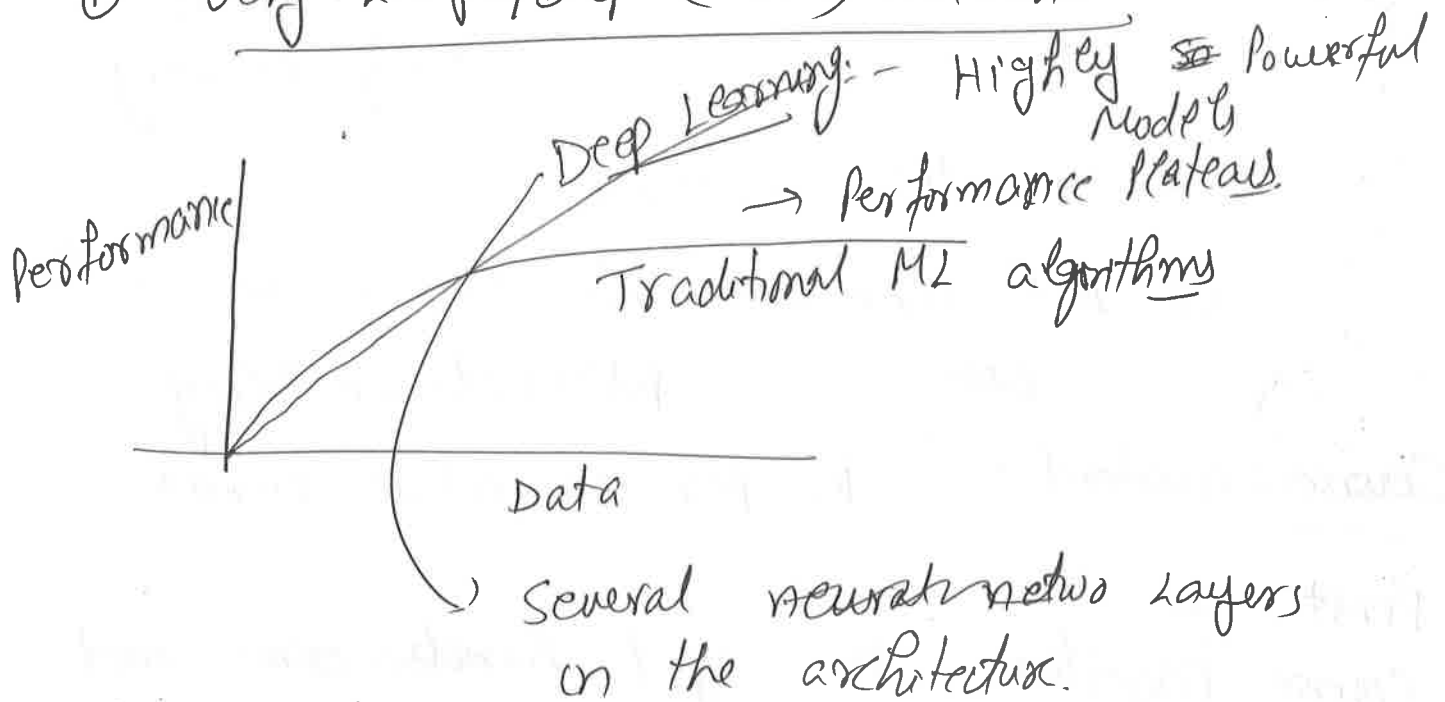 Deep Learning:- Highly Powerful
Models
→ Performance Plateaus.
Performance
Traditional ML algorithms
Data
Several neural netwo Layers
on the architecture.